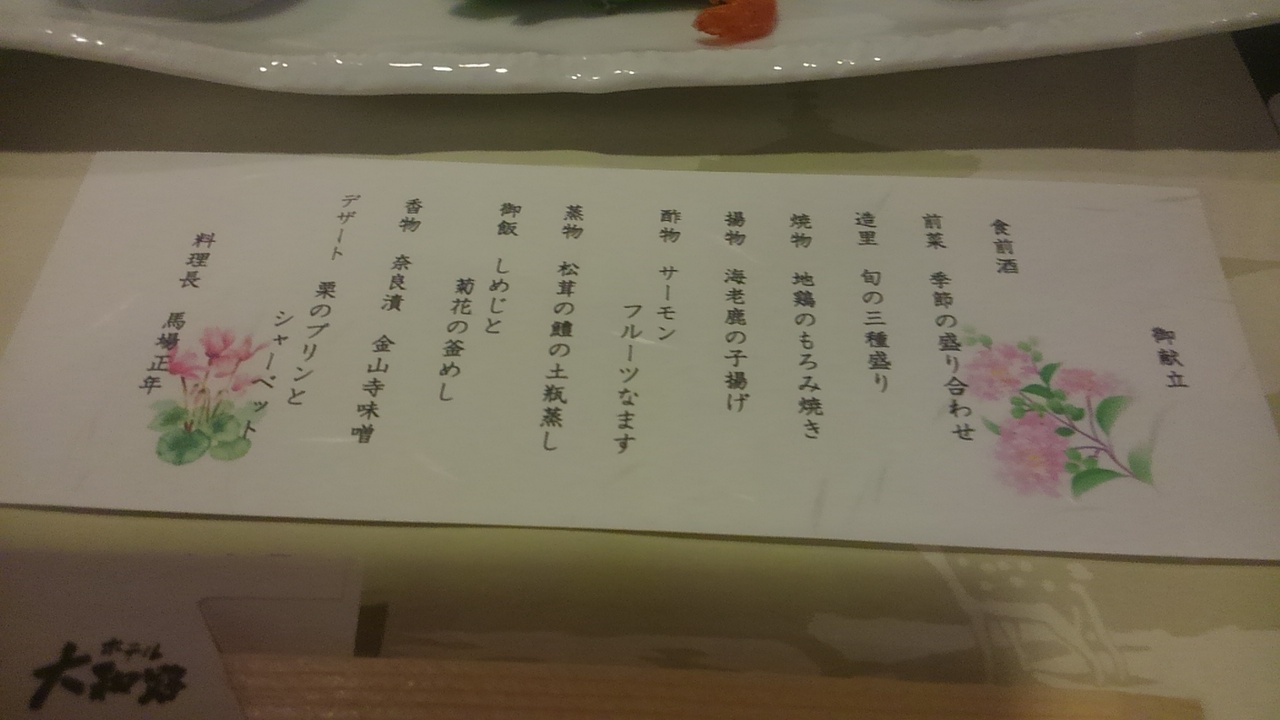 御献立
食前酒
前菜 季節の盛り合わせ
造里 旬の三種盛り
焼物 地鶏のもろみ焼き
揚物 海老鹿の子揚げ
酢物 サーモン
フルーツなます
蒸物 松茸の鱧の土瓶蒸し
御飯 しめじと
菊花の釜めし
香物 奈良漬 金山寺味噌
デザート 栗のプリンと
シャーベット
料理長 馬場正年
ホテル
大和